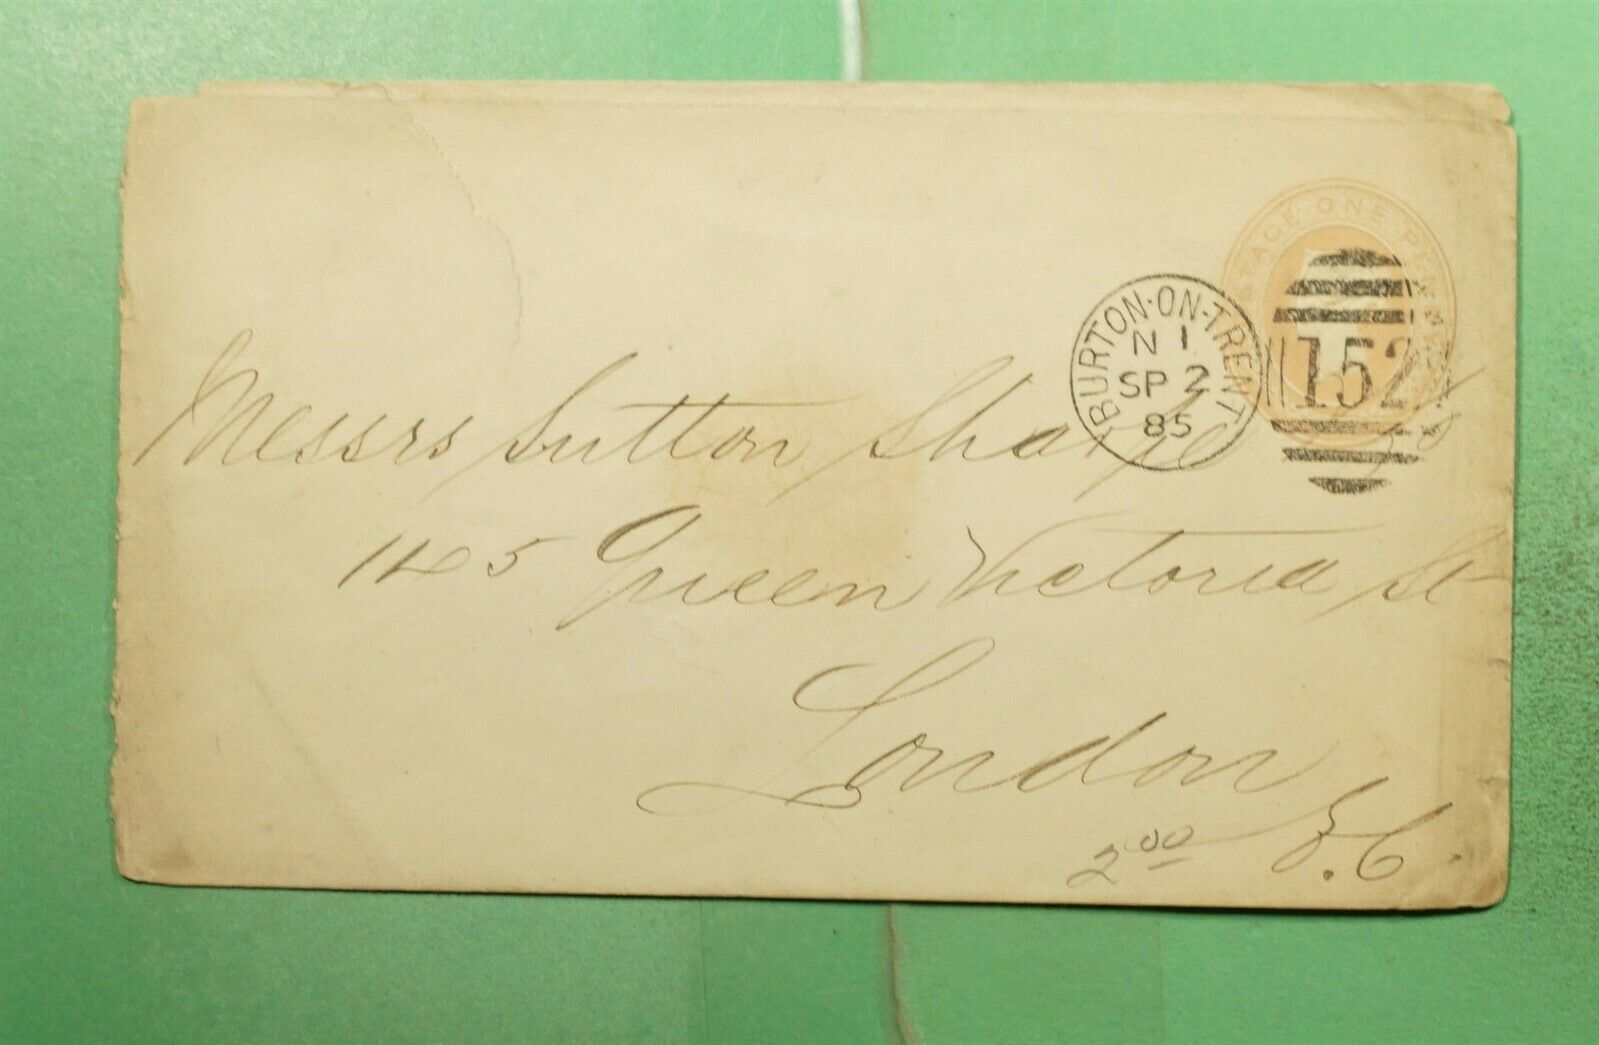 POSTAGE ONE PENNY
BURTON-ON-TRENT
N 1
SP 2
85
152
Messrs Sutton Sharpe & Co
145 Queen Victoria St
London
E.C.
2 00